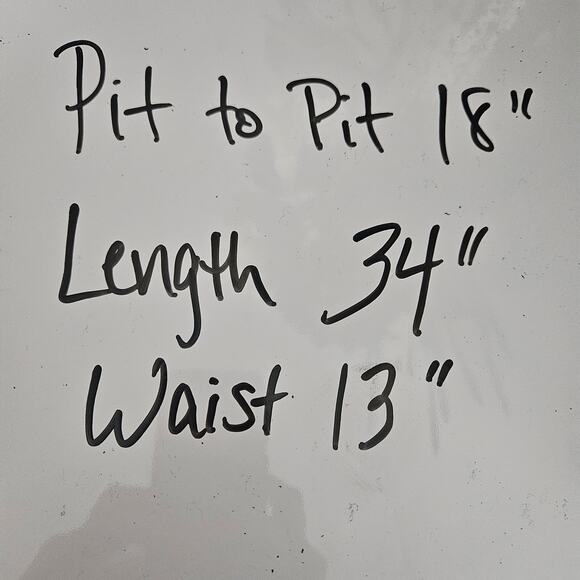 Pit to Pit 18"
Length 34"
Waist 13"